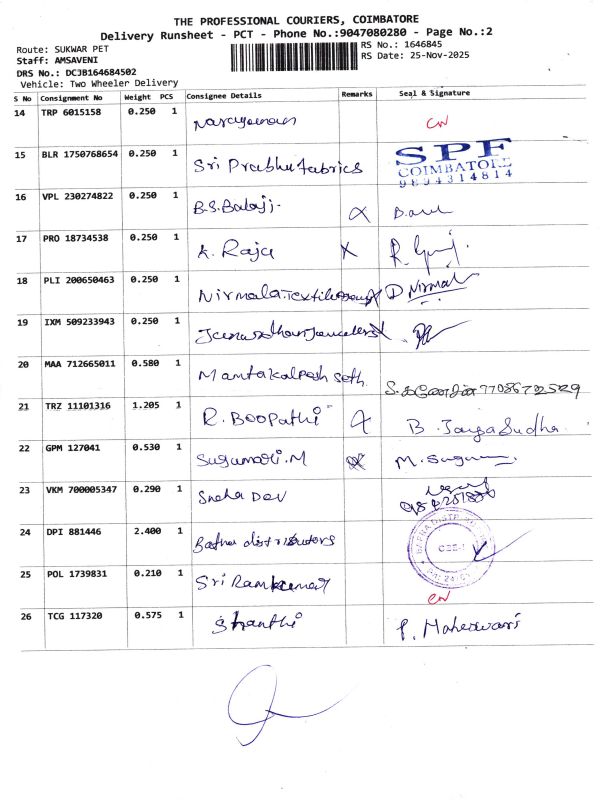 THE PROFESSIONAL COURIERS, COIMBATORE
Delivery Runsheet - PCT - Phone No.:9047080280 - Page No.:2
Route: SUKWAR PET
RS No.: 1646845
Staff: AMSAVENI
RS Date: 25-Nov-2025
DRS No.: DCJB164684502
Vehicle: Two Wheeler Delivery
S No Consignment No Weight PCS Consignee Details Remarks Seal & Signature
14 TRP 6015158 0.250 1 CN
15 BLR 1750768654 0.250 1 Sri Prabhu fabrics SPF
COIMBATORE
9894314814
16 VPL 230274822 0.250 1 B.S.Balaji
17 PRO 18734538 0.250 1 K. Raja X
18 PLI 200650463 0.250 1 D Nirmal
19 IXM 509233943 0.250 1
20 MAA 712665011 0.580 1 Mamtakalpesh Seth
21 TRZ 11101316 1.205 1 R. Boopathi B. JayaSudha.
22 GPM 127041 0.530 1 Sugumari.M M. Sugum
23 VKM 700005347 0.290 1 Sneha Dev
24 DPI 881446 2.400 1 Bafna distributors
25 POL 1739831 0.210 1 Sri Ramkumar CN
26 TCG 117320 0.575 1 Shanthi P. Maheswari